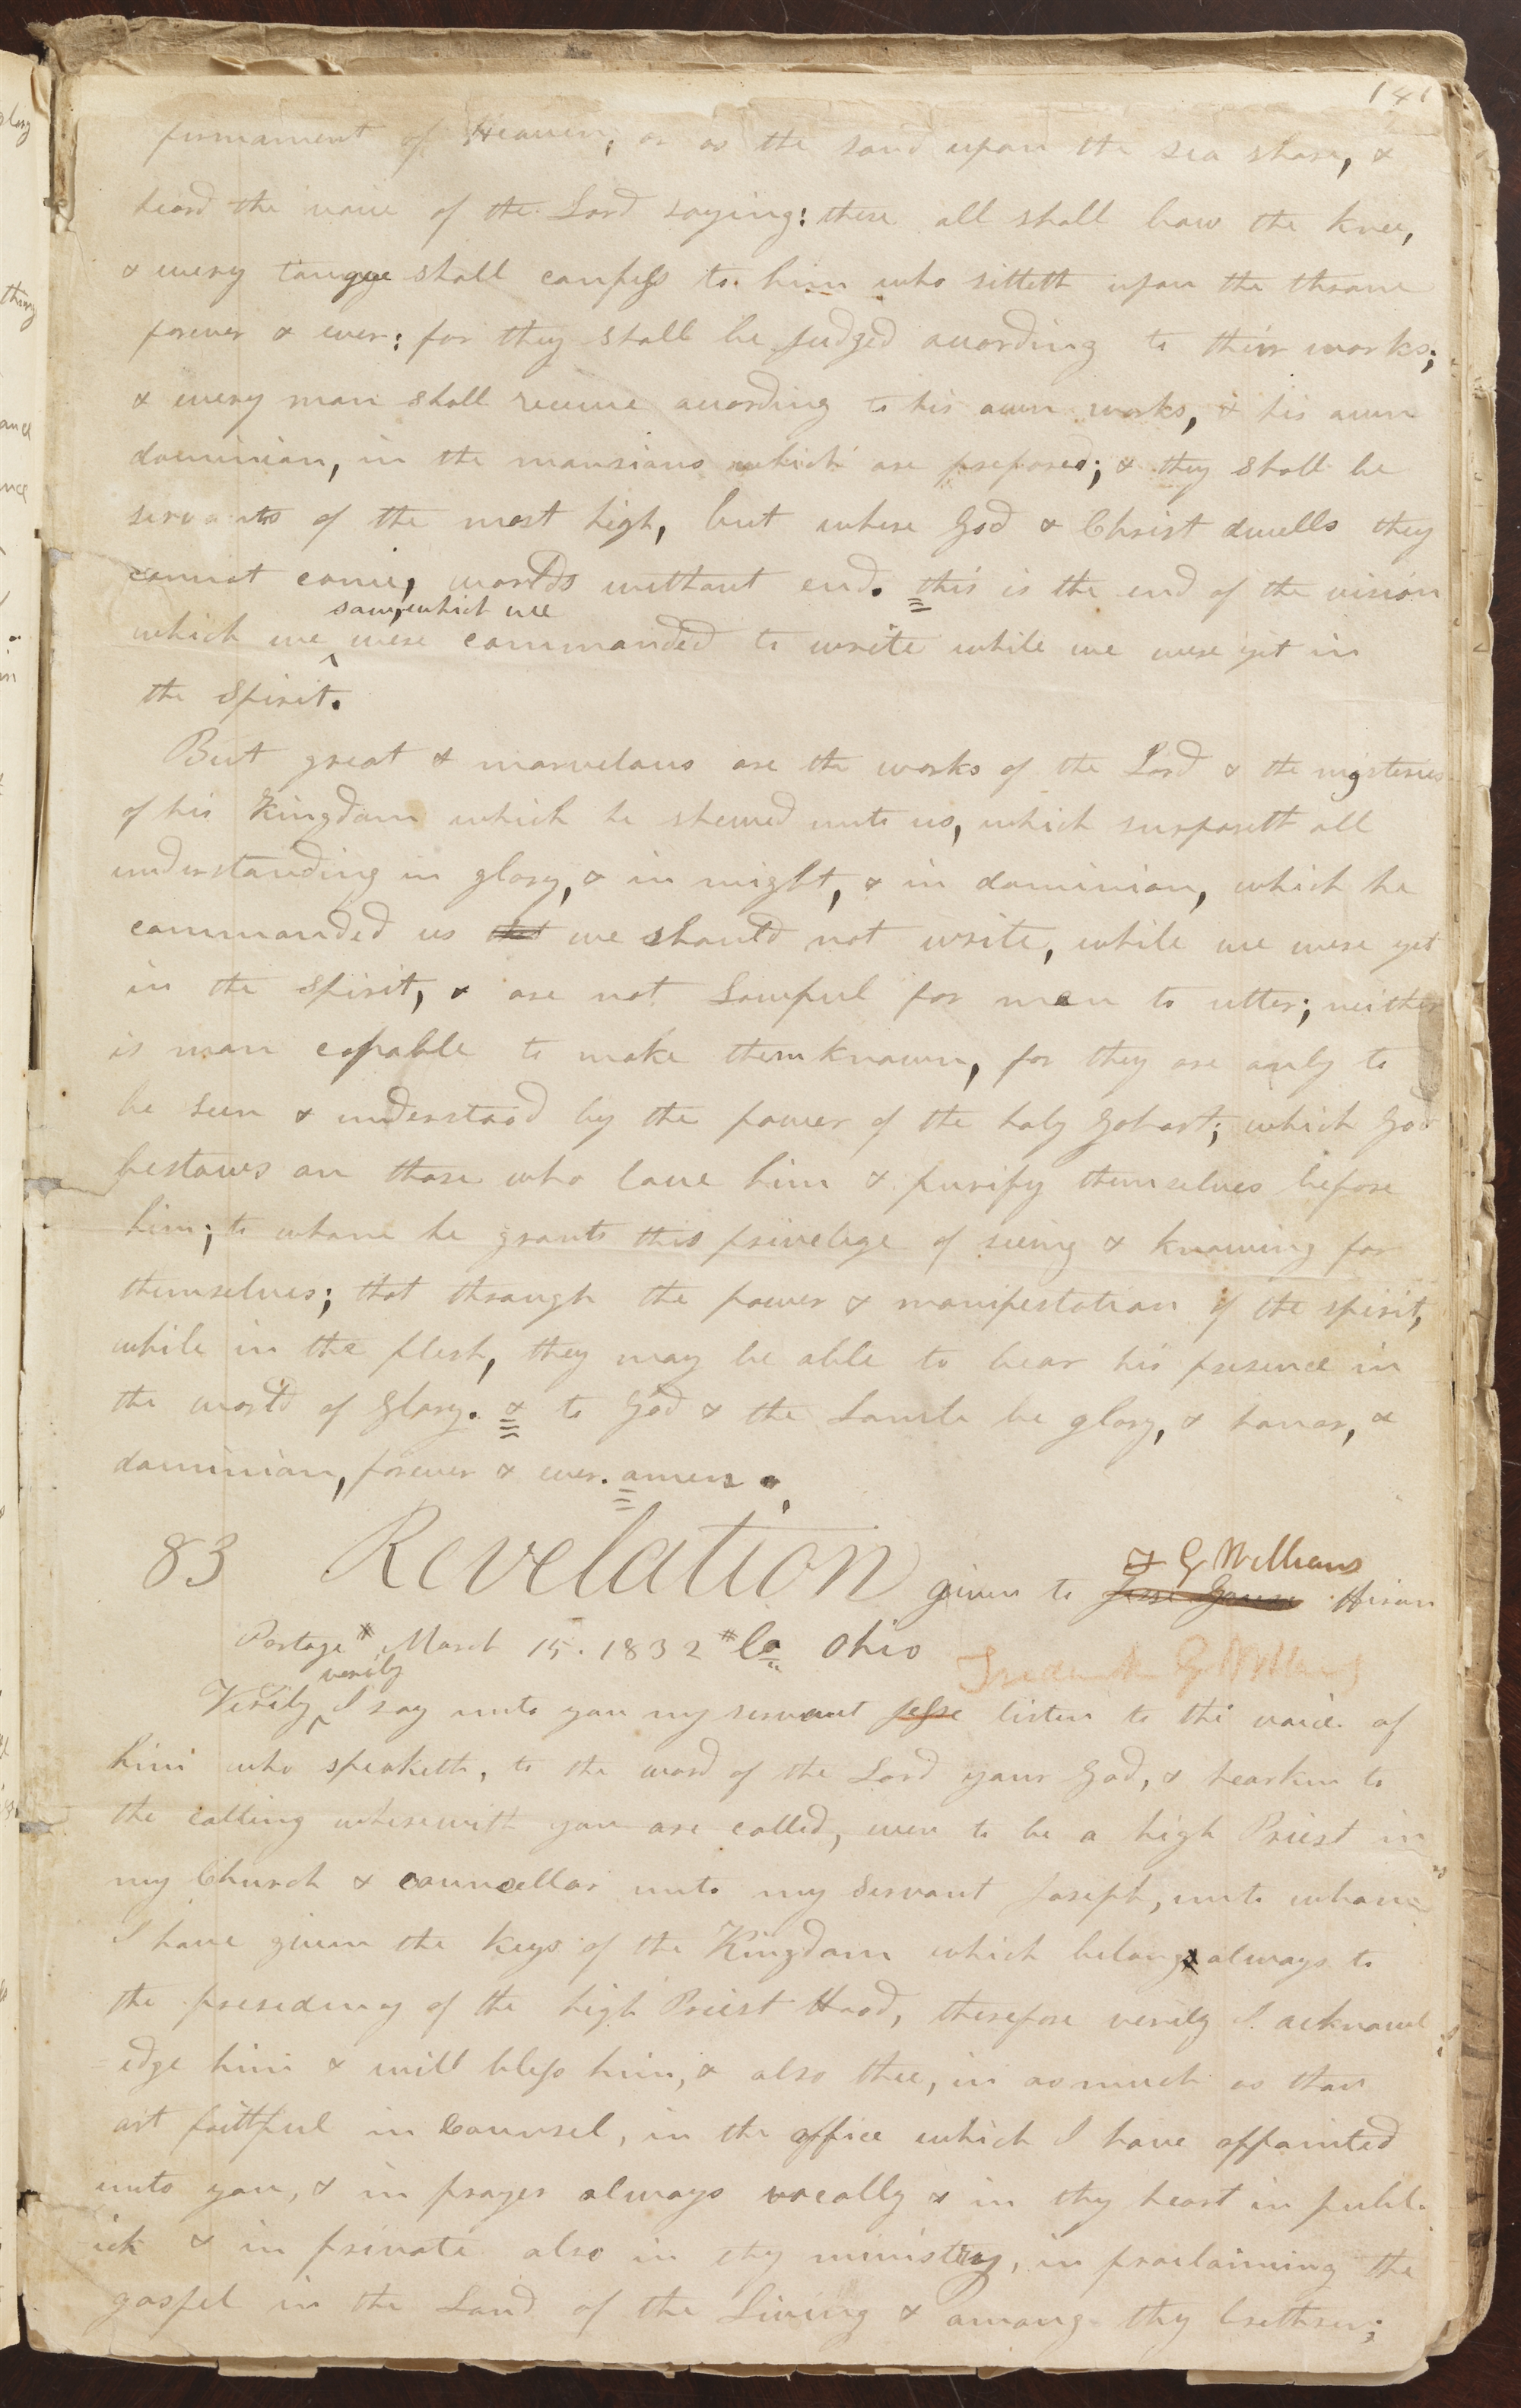 141
firmament of Heaven, or as the sand upon the sea shore, &
heard the voice of the Lord saying: these all shall bow the knee,
& every tongue shall confess to him who sitteth upon the throne
forever & ever: for they shall be Judged according to their works;
& every man shall receive according to his own works, & his own
dominion, in the mansions which are prepared; & they shall be
servants of the most high, but where God & Christ dwells they
cannot come, worlds without end. this is the end of the vision
saw, which we
which we were commanded to write while we were yet in
the spirit.
But great & marvelous are the works of the Lord & the mysteries
of his Kingdom which he shewed unto us, which surpaseth all
understanding in glory, & in might, & in dominion, which he
commanded us that we should not write, while we were yet
in the Spirit, & are not Lawful for men to utter; neither
is man capable to make them known, for they are only to
be seen & understood by the power of the holy Gohost; which God
bestows on those who love him & purify themselves before
him; to whom he grants this privelege of seeing & knowing for
themselves; that through the power & manifestation of the spirit,
while in the flesh, they may be able to bear his presence in
the world of Glory. & to God & the Lamb be glory, & honor, &
dominion, forever & ever. amen.
F G Williams
83 Revelation given to Jesse Gause Hiram
Portage * March 15. 1832 * Co Ohio
Frederick G Williams
verily
Verily I say unto you my servant Jesse listen to the voice of
him who speaketh, to the word of the Lord your God, & hearken to
the calling wherewith you are called, even to be a high Priest in
my Church & councellor unto my Servant Joseph, unto whom
I have given the keys of the Kingdom which belongs always to
the presidency of the high Priest Hood, therefore verily I acknowl
edge him & will bless him, & also thee, in as much as thou
art faithful in Counsel, in the office which I have appointed
unto you, & in prayer always vocally & in thy heart in publ
ick & in private also in thy ministry, in proclaiming the
gospel in the Land of the Living & among thy brethren;